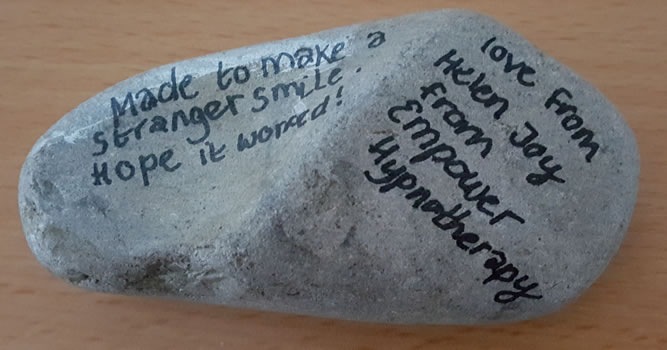 Made to make a
stranger smile.
Hope it worked!
love From
Helen Joy
From
Empower
Hypnotherapy